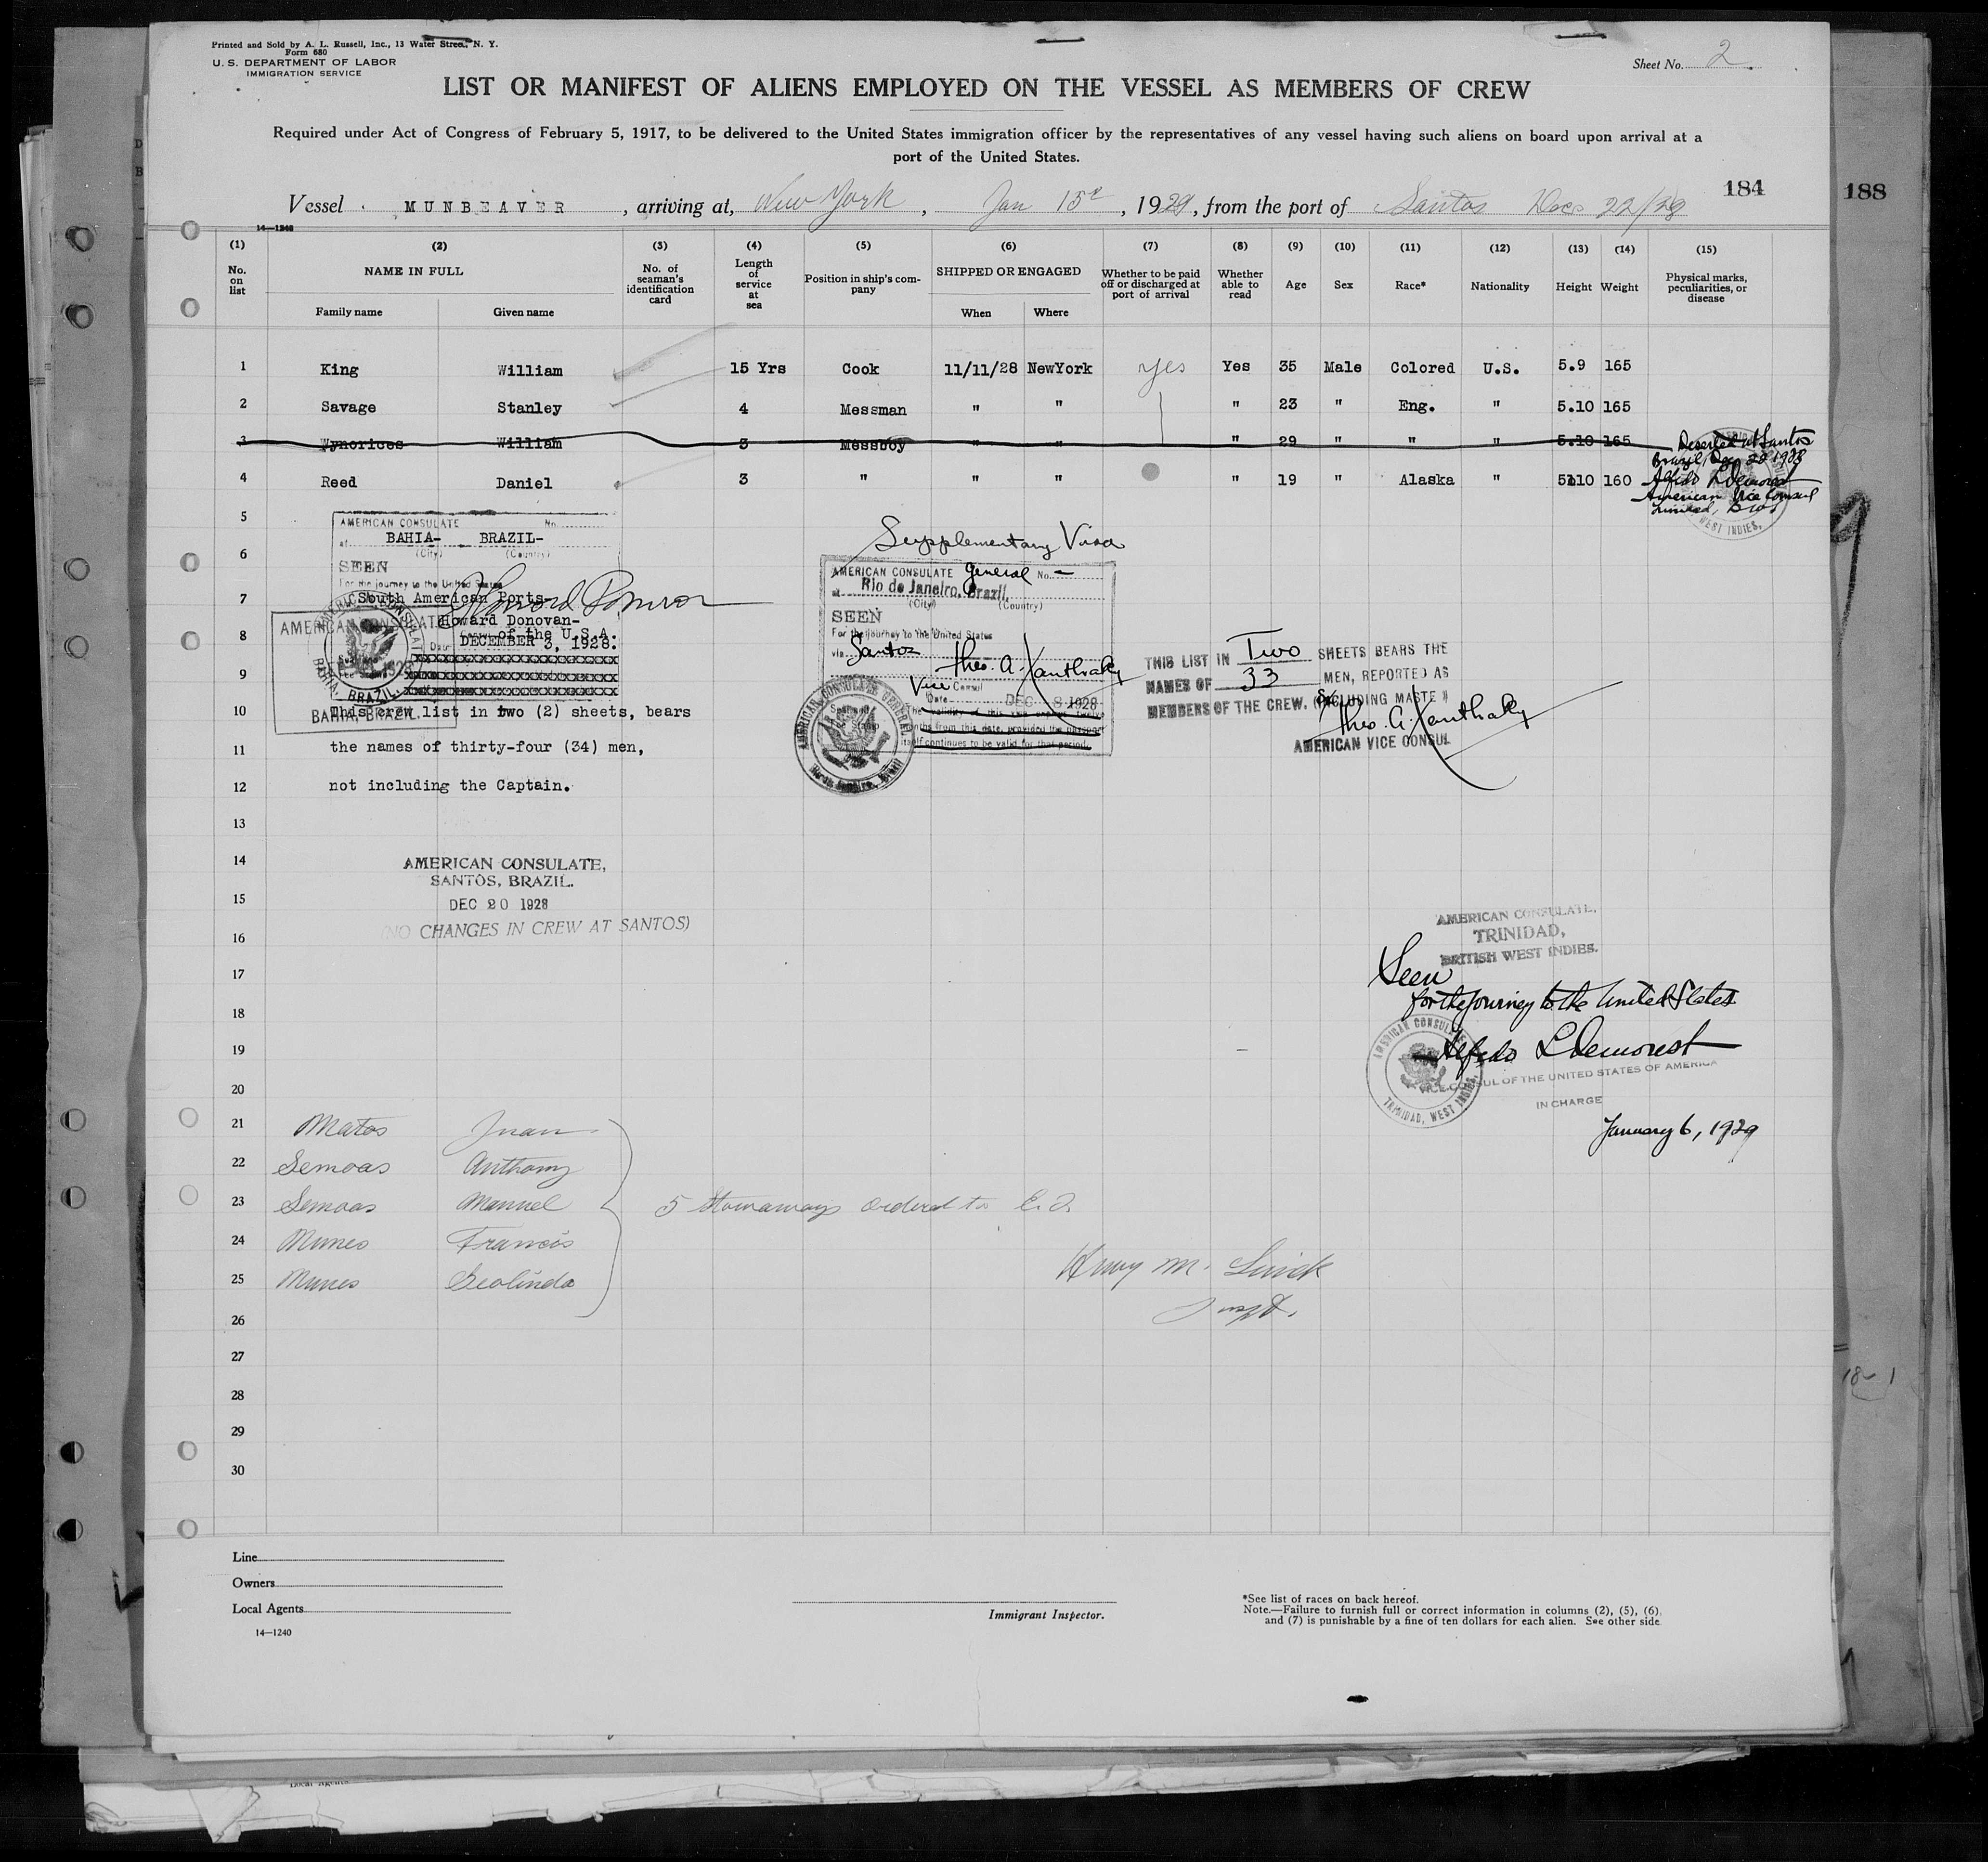 Printed and Sold by A. L. Russell, Inc., 13 Water Street, N. Y.
Form 680
U. S. DEPARTMENT OF LABOR
IMMIGRATION SERVICE
Sheet No. 2
LIST OR MANIFEST OF ALIENS EMPLOYED ON THE VESSEL AS MEMBERS OF CREW
Required under Act of Congress of February 5, 1917, to be delivered to the United States immigration officer by the representatives of any vessel having such aliens on board upon arrival at a
port of the United States.
184
188
Vessel MUNBEAVER, arriving at, New York, Jan 15th, 1929, from the port of Santos Dec 22/28
14—1240
(1) (2) (3) (4) (5) (6) (7) (8) (9) (10) (11) (12) (13) (14) (15)
No. on list
NAME IN FULL
Family name
Given name
No. of seaman's identification card
Length of service at sea
Position in ship's company
SHIPPED OR ENGAGED
When
Where
Whether to be paid off or discharged at port of arrival
Whether able to read
Age
Sex
Race*
Nationality
Height
Weight
Physical marks, peculiarities, or disease
1 King William 15 Yrs Cook 11/11/28 NewYork yes Yes 35 Male Colored U.S. 5.9 165
2 Savage Stanley 4 Messman " " " 23 " Eng. " 5.10 165
3 Wynorices William 3 Messboy " " " 29 " " " 5.10 165
Deserted at Santos
Brazil, Dec 22 1928
Alfredo L Demorest
American Vice Consul
Trinidad, B.W.I.
WEST INDIES.
4 Reed Daniel 3 " " " " 19 " Alaska " 5110 160
5
6
7
8
9
10
11
12
13
14
15
16
17
18
19
20
AMERICAN CONSULATE No.
at BAHIA- BRAZIL-
(City) (Country)
SEEN
For the journey to the United States
South American Ports-
Howard Donovan
Howard Donovan-
of the U.S.A.
Date DECEMBER 3, 1928.
AMERICAN CONSULATE
BAHIA, BRAZIL.
BAHIA, BRAZIL.
This crew list in two (2) sheets, bears
the names of thirty-four (34) men,
not including the Captain.
Supplementary Visa
AMERICAN CONSULATE General No. -
at Rio de Janeiro, Brazil.
(City) (Country)
SEEN
For the journey to the United States
via Santos
Theo. A. Xanthaky
Vice Consul
Date DEC 8 1928
The validity of this visa expires twelve
months from this date, provided the passport
itself continues to be valid for that period.
AMERICAN CONSULATE GENERAL
Rio de Janeiro, Brazil
THIS LIST IN Two SHEETS BEARS THE
NAMES OF 33 MEN, REPORTED AS
MEMBERS OF THE CREW. INCLUDING MASTE
Theo. A. Xanthaky
AMERICAN VICE CONSUL
AMERICAN CONSULATE,
SANTOS, BRAZIL.
DEC 20 1928
(NO CHANGES IN CREW AT SANTOS)
AMERICAN CONSULATE,
TRINIDAD,
BRITISH WEST INDIES.
Seen
for the journey to the United States
Alfredo L Demorest
VICE CONSUL OF THE UNITED STATES OF AMERICA
IN CHARGE
AMERICAN CONSULATE
TRINIDAD, WEST INDIES.
January 6, 1929
21 Matos Juan
22 Semoas Anthony
23 Semoas Manuel
24 Munes Francis
25 Munes Deolinda
5 Stowaways ordered to E. I.
Henry M.
Insp.
26
27
28
29
30
18- 1
Line
Owners
Local Agents
14—1240
Immigrant Inspector.
*See list of races on back hereof.
Note.—Failure to furnish full or correct information in columns (2), (5), (6),
and (7) is punishable by a fine of ten dollars for each alien. See other side
Local Agents